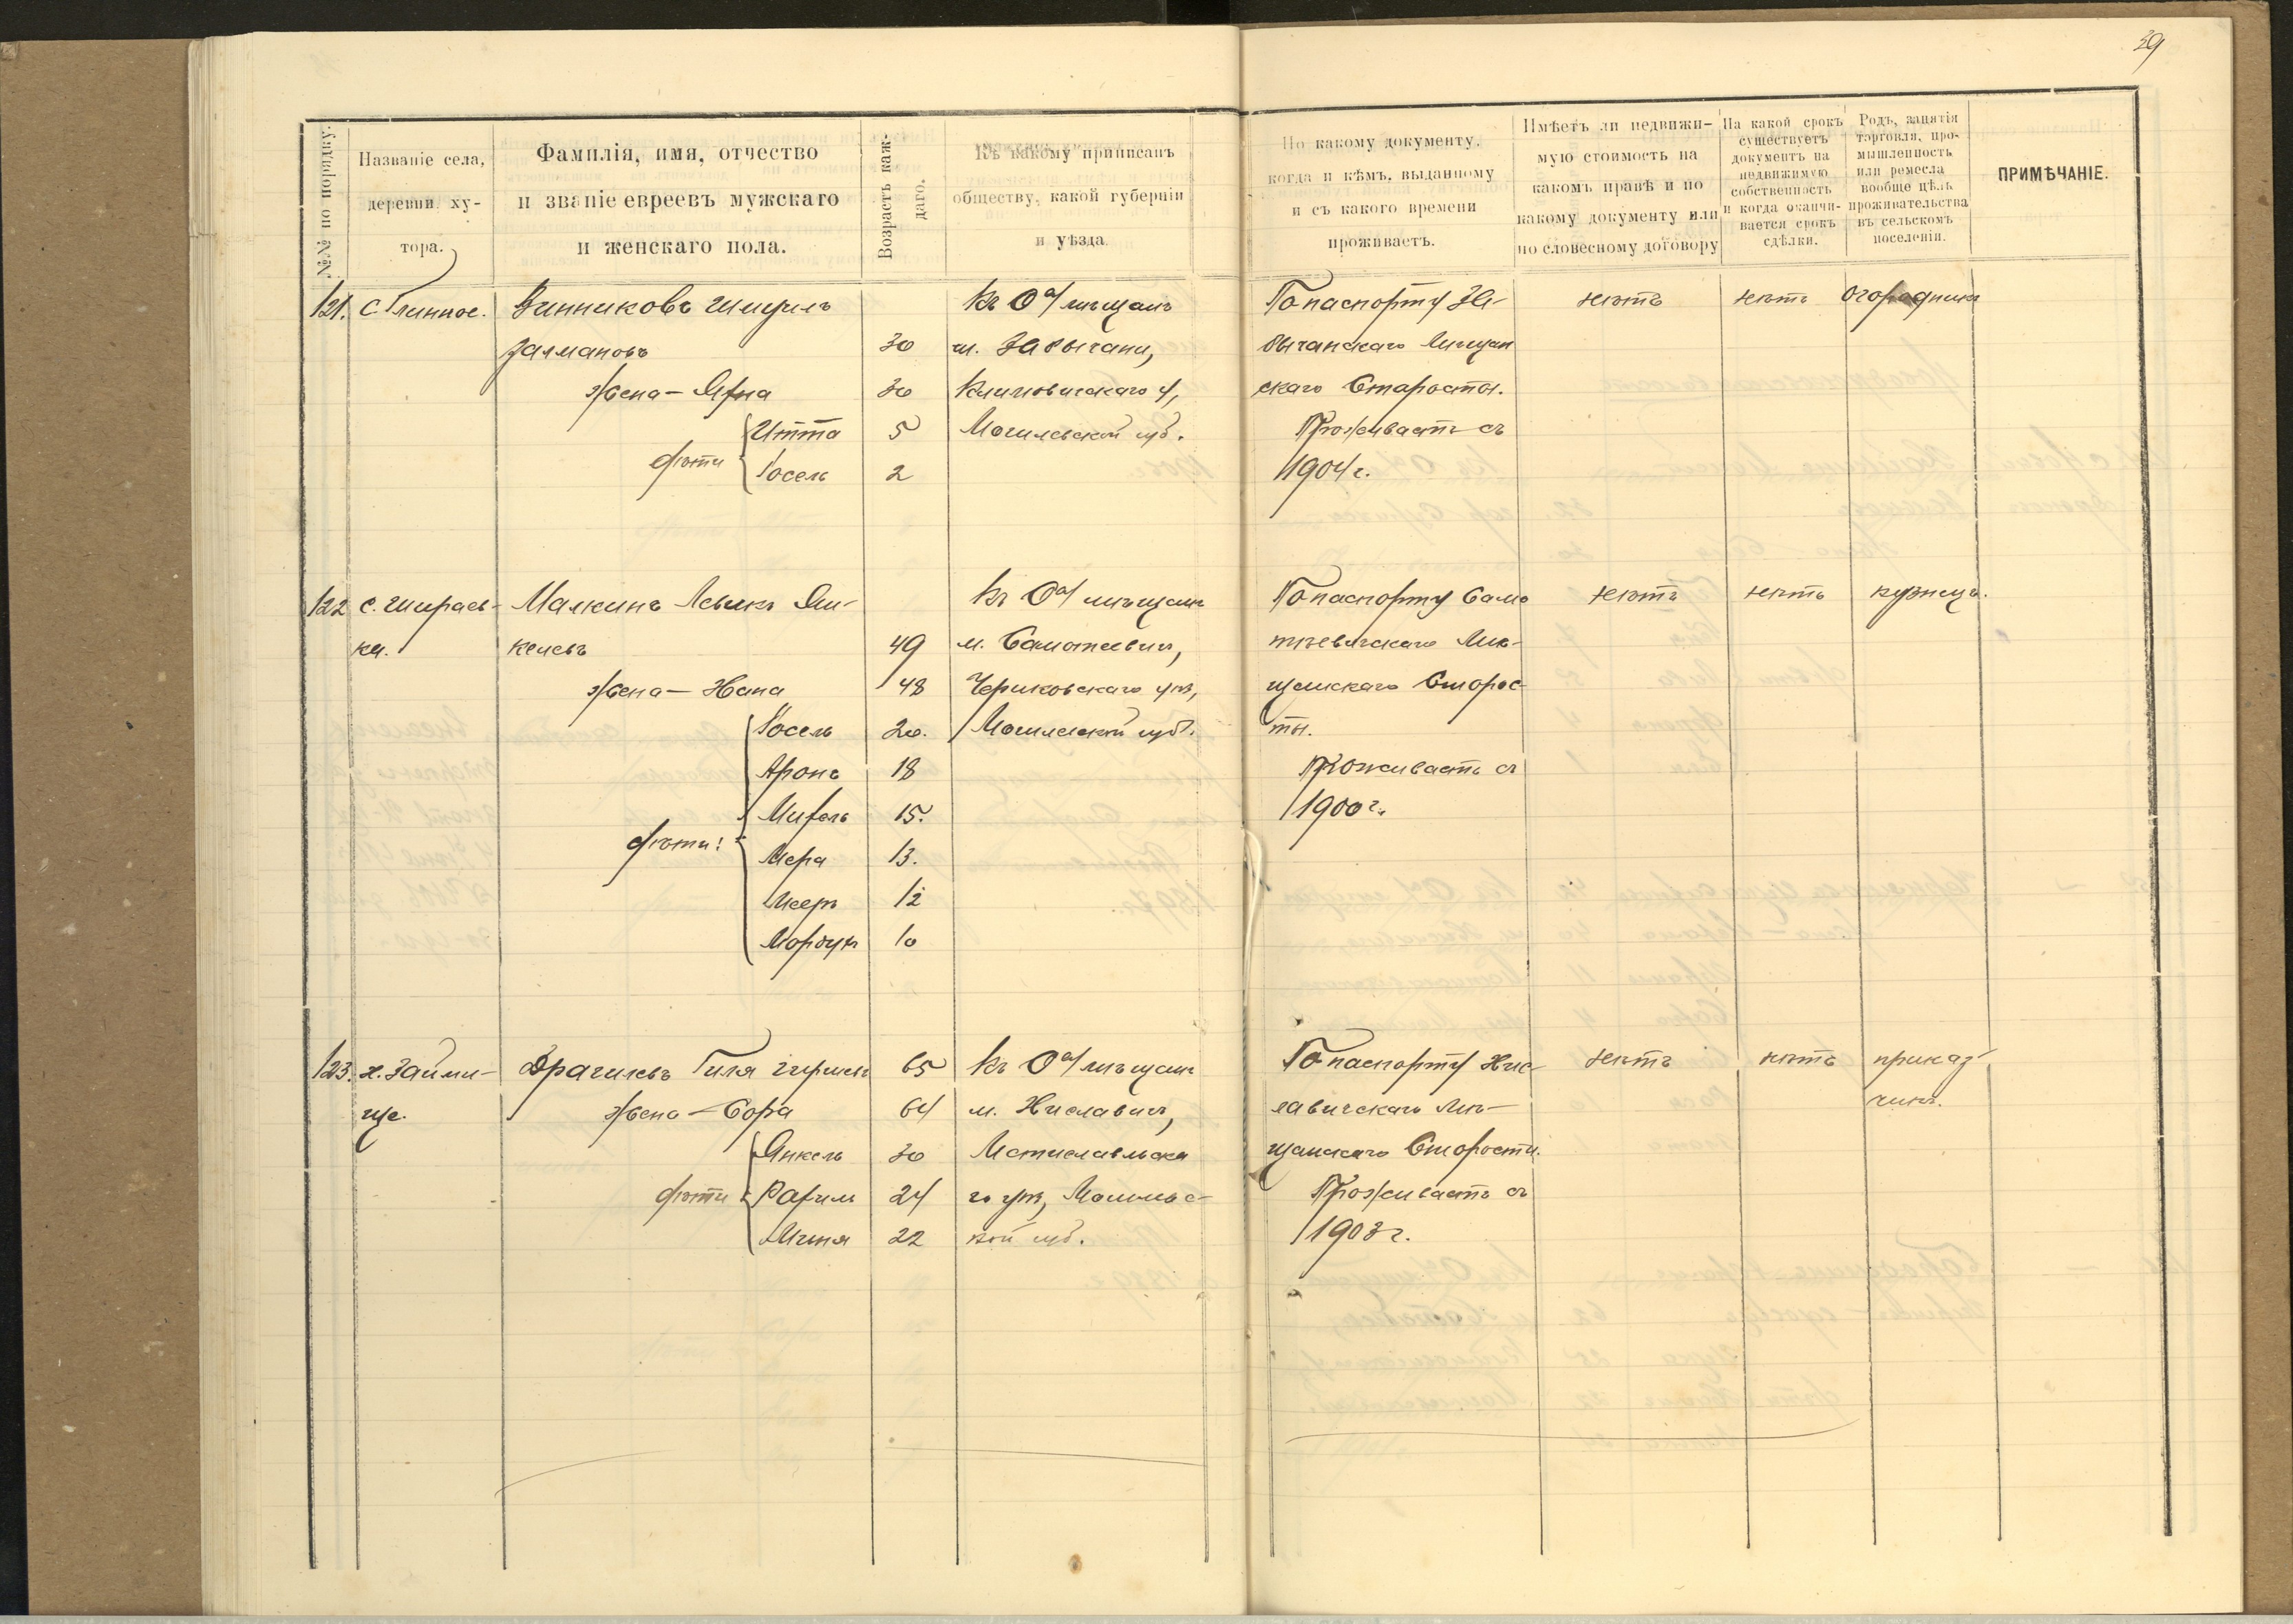 39
№№ по порядку.
Названіе села,
деревни, ху-
тора.
Фамилія, имя, отчество
и званіе евреевъ мужскаго
и женскаго пола.
Возрастъ каж-
даго.
Къ какому приписанъ
обществу, какой губерніи
и уѣзда
По какому документу,
когда и кѣмъ, выданному
и съ какого времени
проживаетъ.
Имѣетъ ли недвижи-
мую стоимость на
какомъ правѣ и по
какому документу или
по словесному договору
На какой срокъ
существуетъ
документъ на
недвижимую
собственность
и когда оканчи-
вается срокъ
сдѣлки.
Родъ, занятія
торговля, про-
мышленность
или ремесла
вообще цѣль
проживательства
въ сельскомъ
поселеніи.
ПРИМѢЧАНІЕ.
121. с. Глинное. Винниковъ Шмуилъ
Залмановъ 30
жена — 30
дѣти Итта 5
Іосель 2
Къ О-ву мѣщанъ
м. Забычани,
Климовичскаго у,
Могилевской губ.
По паспорту За-
бычанскаго Мѣщан
скаго Старосты.
Проживаетъ съ
1904 г.
нѣтъ нѣтъ огородникъ
122 с. Шираев-
ка.
Малкинъ Левикъ Ян-
келевъ 49
жена — Хана 48
дѣти: Іосель 20.
Аронъ 18
15.
Мера 13.
Мееръ 12
Мордухъ 10
Къ О-ву мѣщанъ
м. Самотеевичи,
Чериковскаго уѣз,
Могилевской губ.
По паспорту Само
тѣевичскаго Мѣ-
щанскаго Старос-
ты.
Проживаетъ съ
1900 г.
нѣтъ нѣтъ кузнецъ.
123. х. Займи-
ще.
Драгилевъ Гиля Гиршевъ 65
жена — Сора 64
дѣти Янкель 30
24
22
Къ О-ву мѣщанъ
м. Хиславичи,
Мстиславльска
го уѣз, Могилевс-
кой губ.
По паспорту Хис-
лавичскаго Мѣ-
щанскаго Старосты.
Проживаетъ съ
1903 г.
нѣтъ нѣтъ приказ-
чикъ.